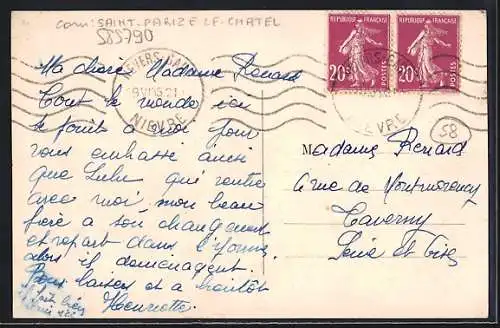 com: SAINT-PARIZE LE-CHATEL
585790
REPUBLIQUE FRANÇAISE REPUBLIQUE FRANÇAISE
20c POSTES 20c POSTES
NEVERS
NIEVRE
NIEVRE
58
Ma chère Madame Renard
Tout le monde ici
se joint à moi pour
vous embrasser ainsi
que Lulu qui rentre
avec moi, mon beau
frère a son changement
et repart dans l'Yonne,
alors il déménagent.
Bons baisers et à bientôt
Henriette
Madame Renard
rue de Montmorency
Taverny
Seine et Oise